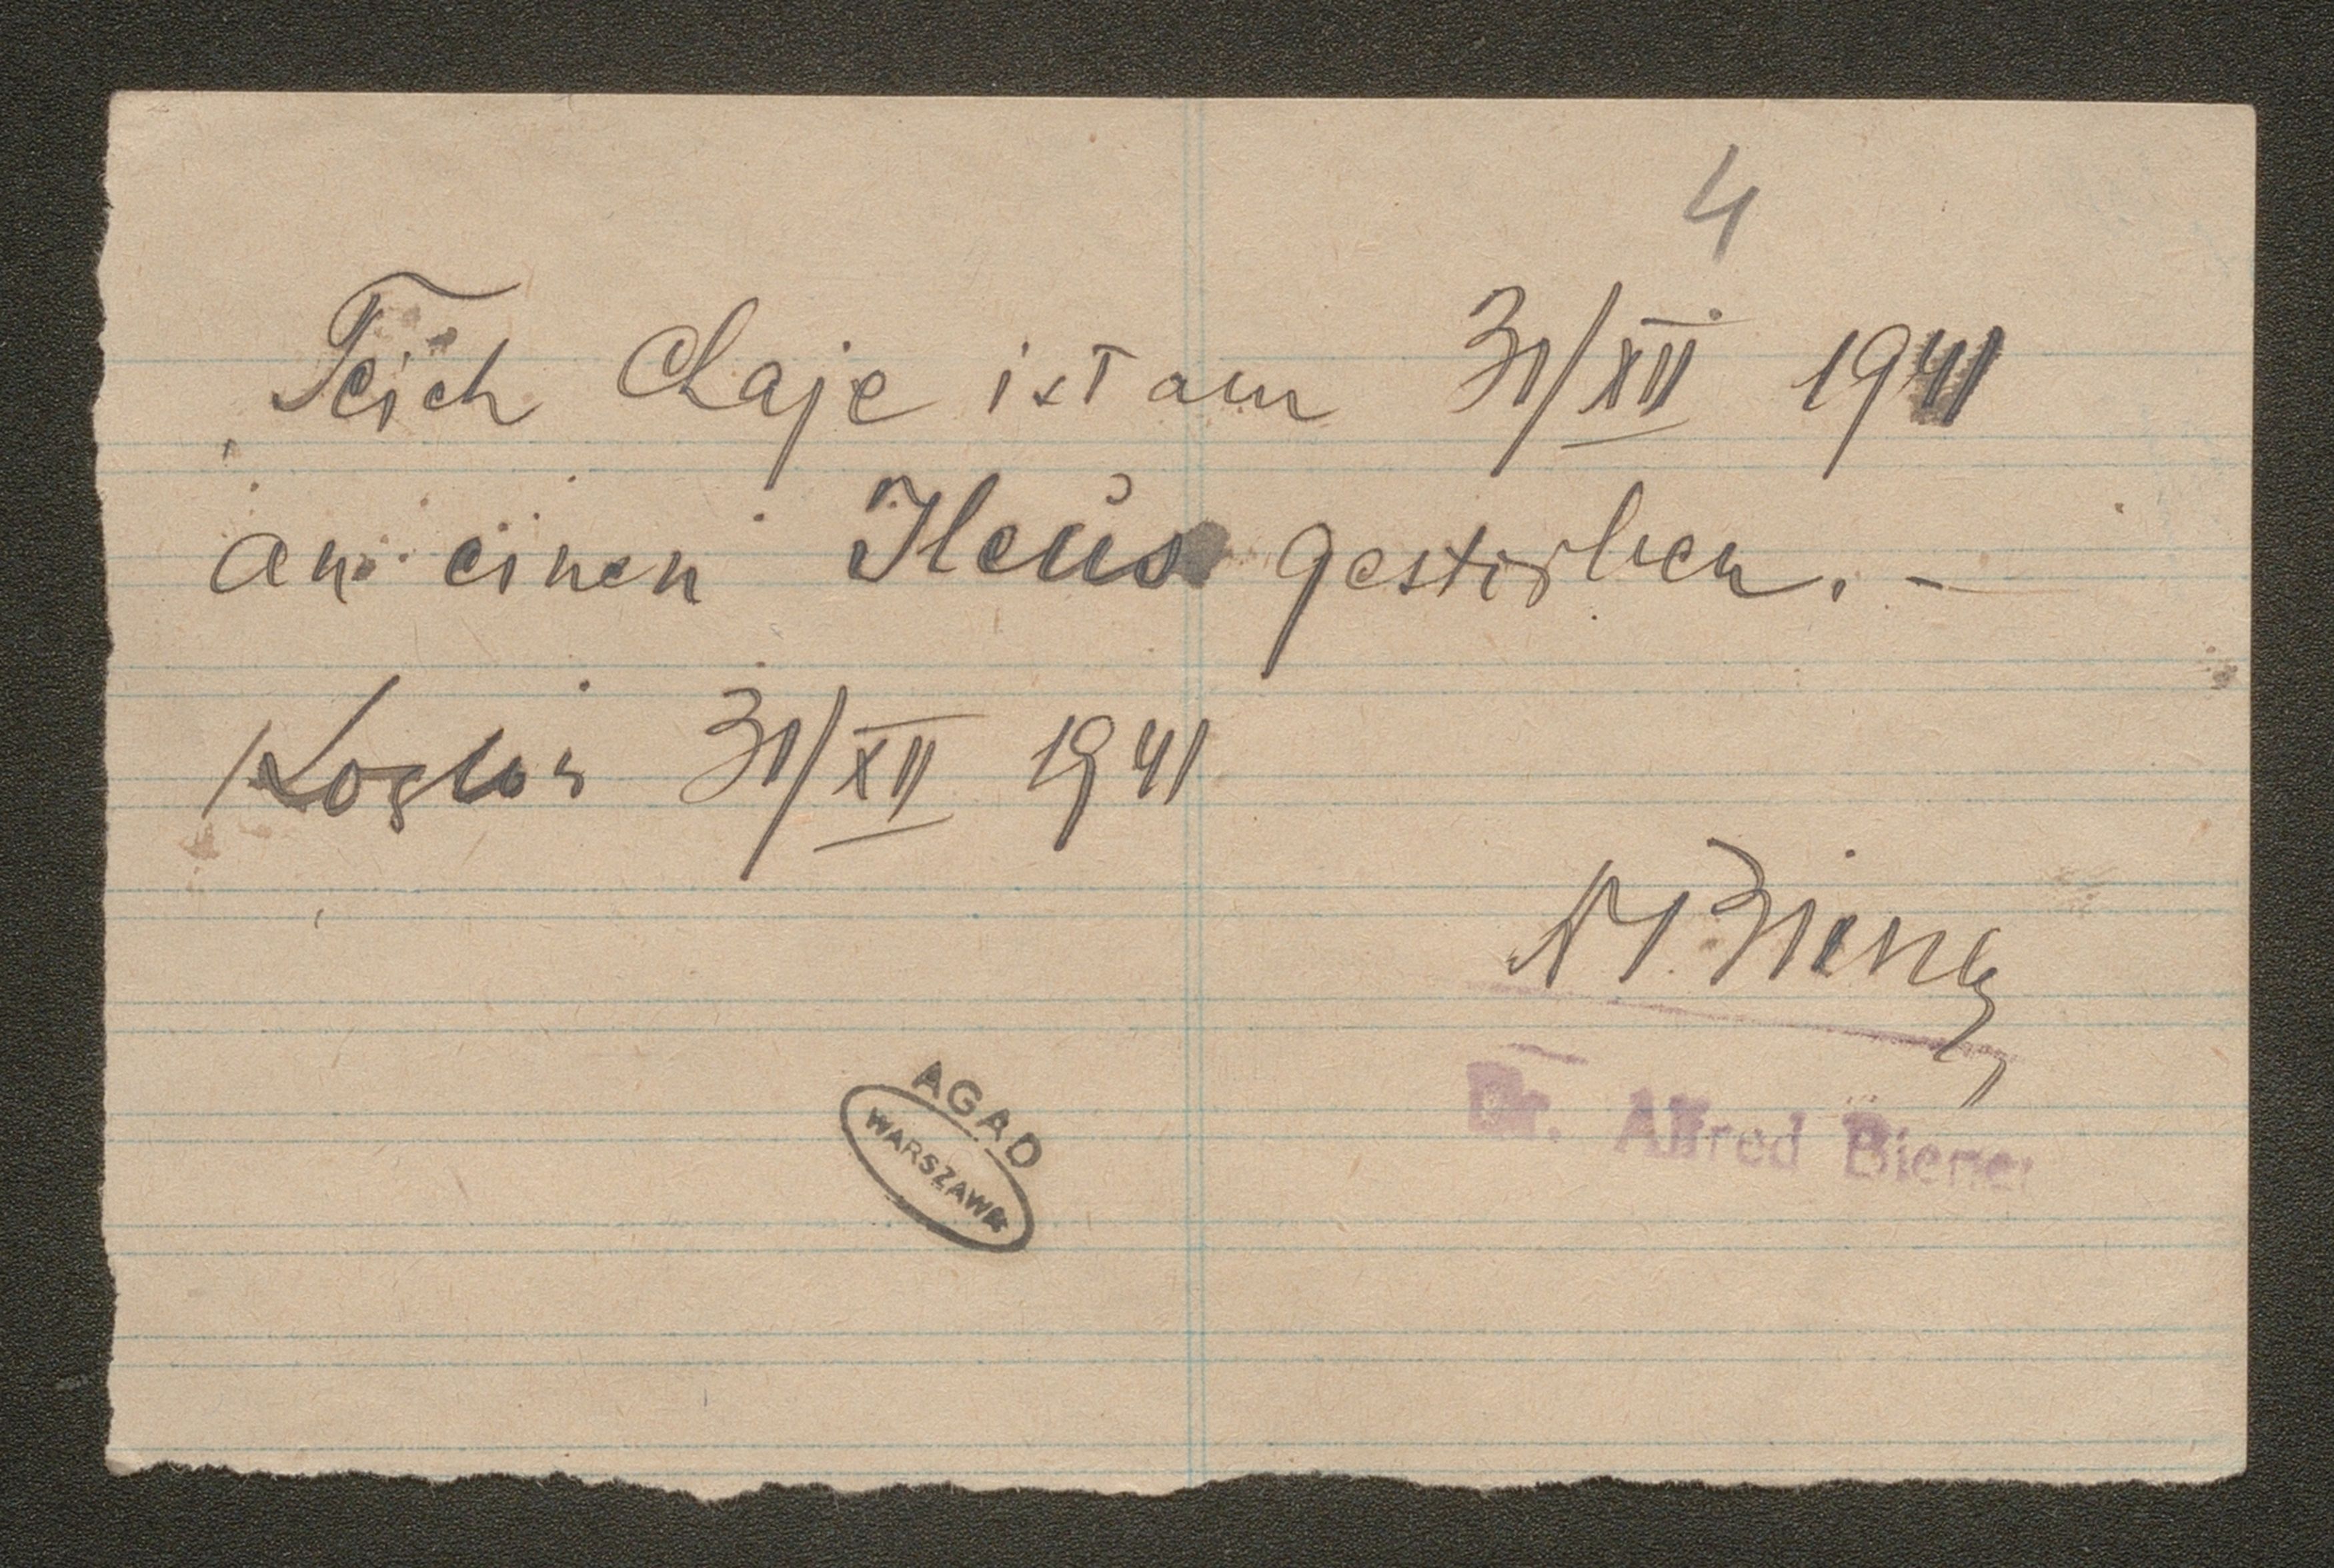 4
Teich Chaje ist am 31/XII 1941
an einen Ileus gestorben. -
31/XII 1941
Dr. Alfred Biener
AGAD
WARSZAWA